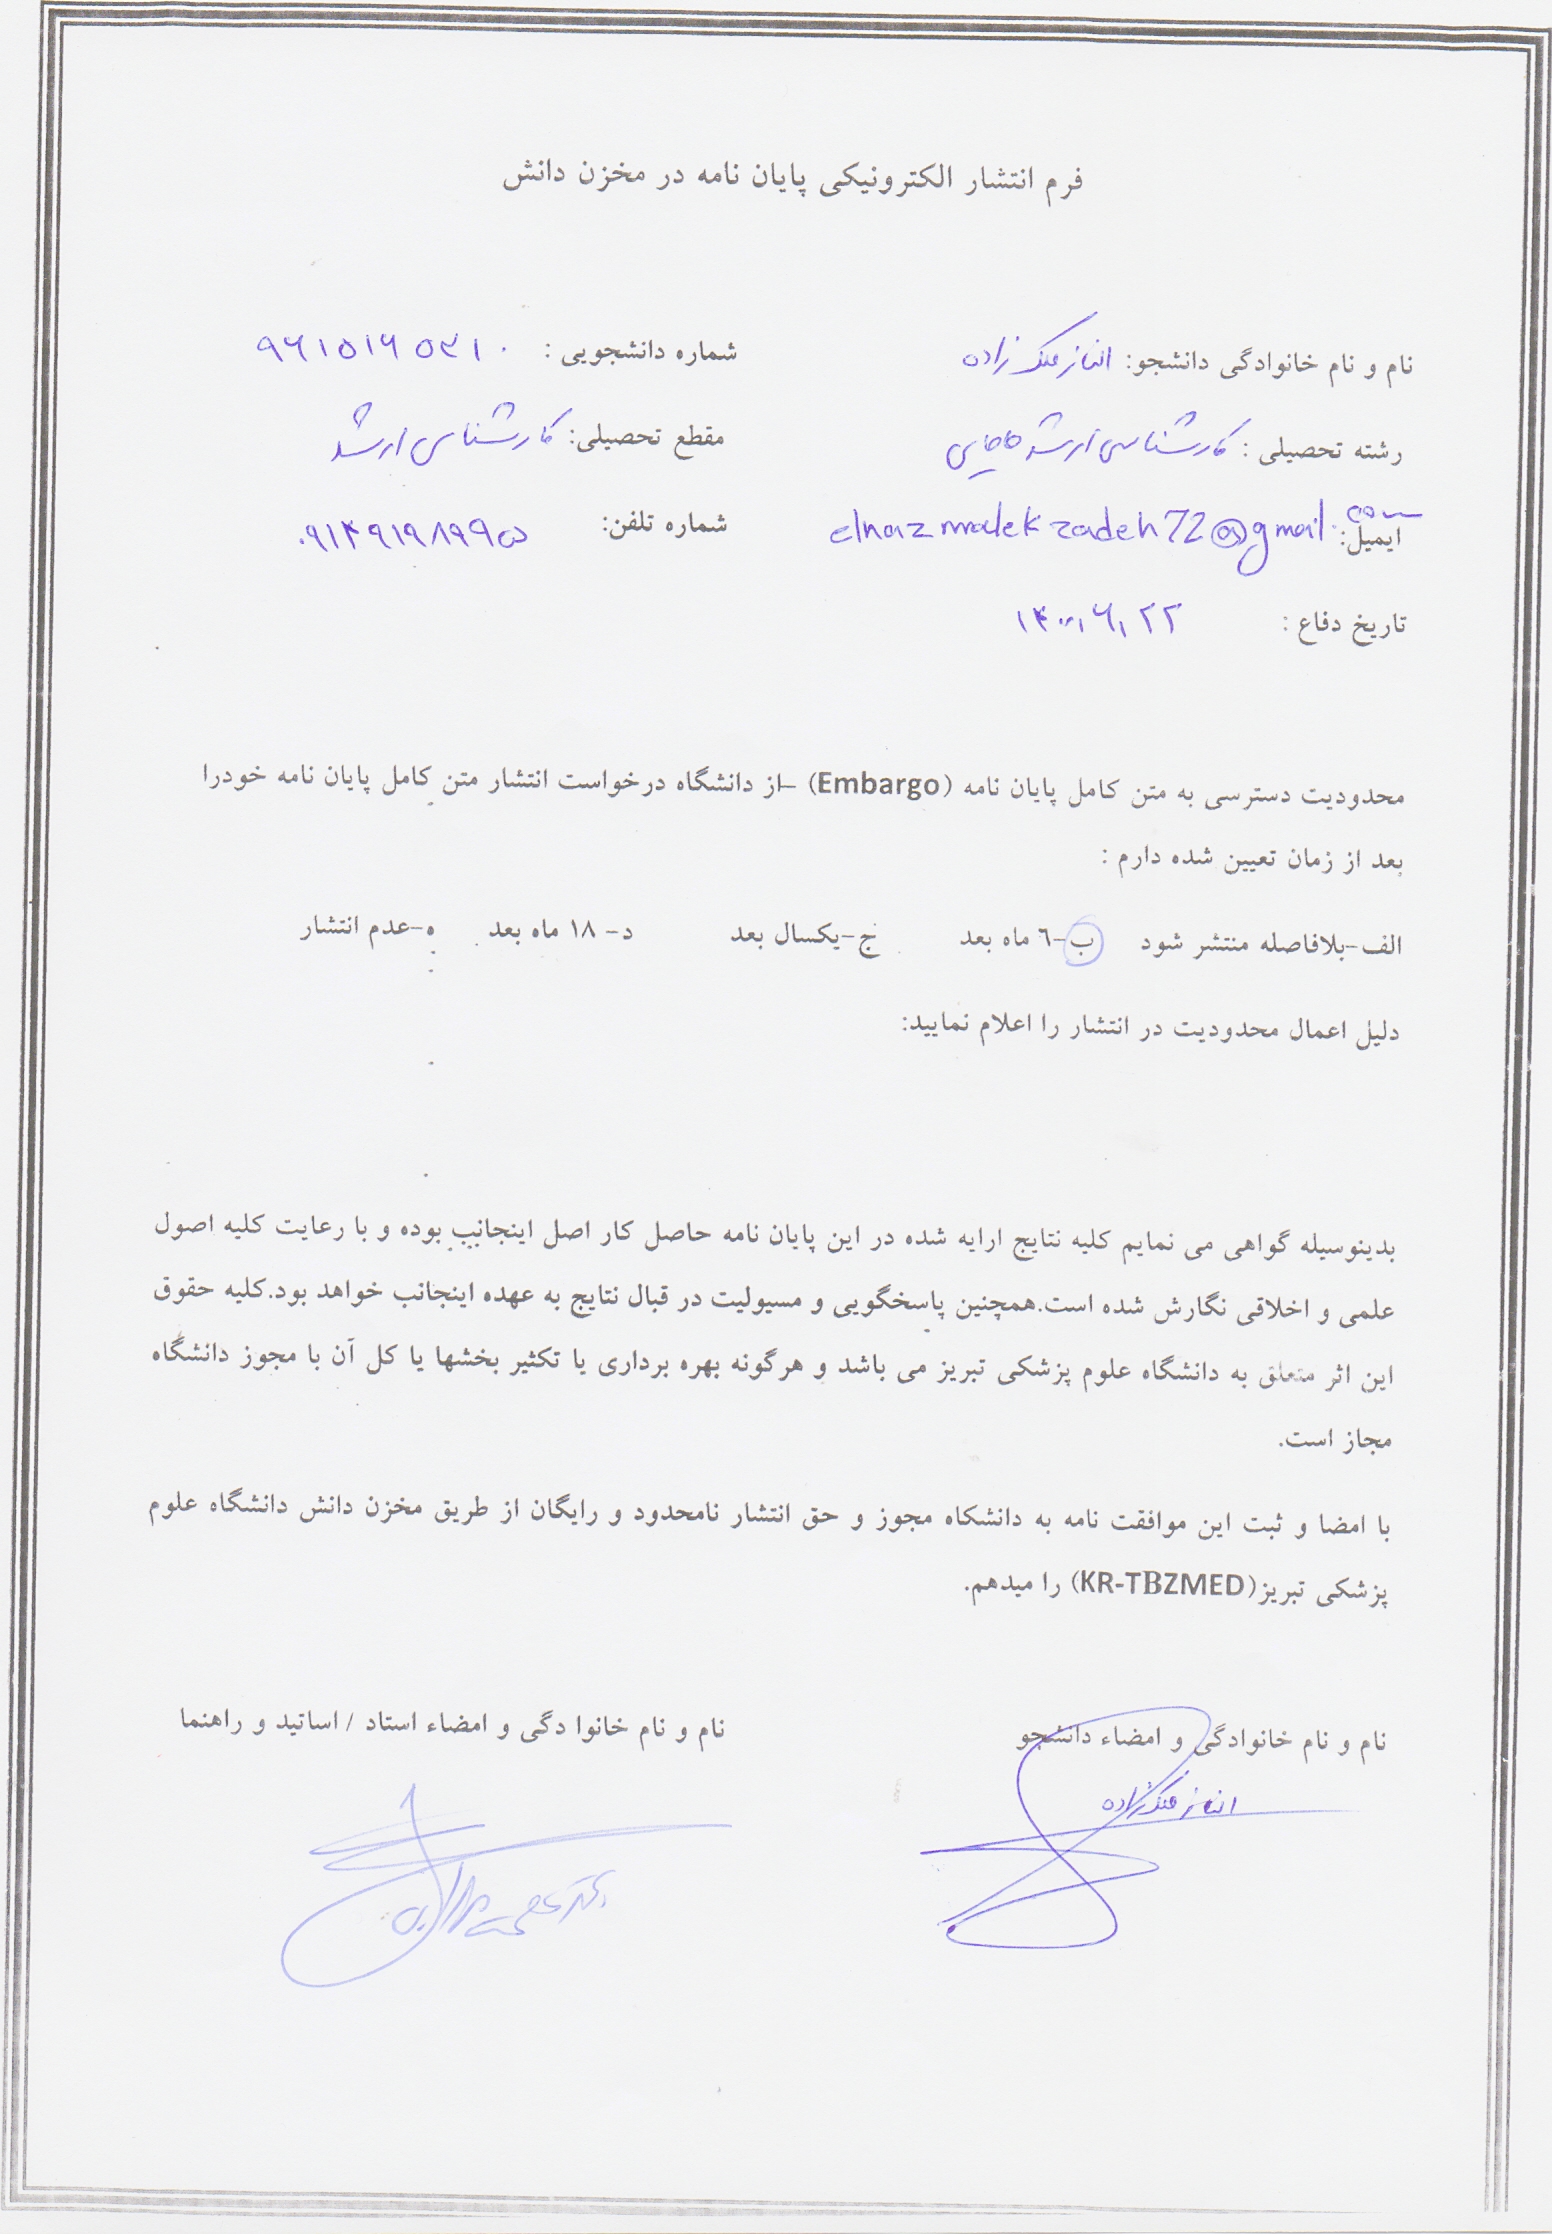 فرم انتشار الکترونیکی پایان نامه در مخزن دانش
نام و نام خانوادگی دانشجو: الناز ملک زاده شماره دانشجویی :
رشته تحصیلی : کارشناسی ارشد مامایی مقطع تحصیلی: کارشناسی ارشد
ایمیل: elnazmalekzadeh72@gmail.com شماره تلفن: ۰۹۱۴۹۱۹۸۹۹۵
تاریخ دفاع : ۱۴۰۰/۶/۲۲
محدودیت دسترسی به متن کامل پایان نامه (Embargo) –از دانشگاه درخواست انتشار متن کامل پایان نامه خودرا
بعد از زمان تعیین شده دارم :
الف-بلافاصله منتشر شود ب-٦ ماه بعد ج-یکسال بعد د- ۱۸ ماه بعد ه-عدم انتشار
دلیل اعمال محدودیت در انتشار را اعلام نمایید:
بدینوسیله گواهی می نمایم کلیه نتایج ارایه شده در این پایان نامه حاصل کار اصل اینجانب بوده و با رعایت کلیه اصول
علمی و اخلاقی نگارش شده است.همچنین پاسخگویی و مسیولیت در قبال نتایج به عهده اینجانب خواهد بود.کلیه حقوق
این اثر متعلق به دانشگاه علوم پزشکی تبریز می باشد و هرگونه بهره برداری یا تکثیر بخشها یا کل آن با مجوز دانشگاه
مجاز است.
با امضا و ثبت این موافقت نامه به دانشکاه مجوز و حق انتشار نامحدود و رایگان از طریق مخزن دانش دانشگاه علوم
پزشکی تبریز(KR-TBZMED) را میدهم.
نام و نام خانوادگی و امضاء دانشجو نام و نام خانوا دگی و امضاء استاد / اساتید و راهنما
الناز ملک زاده